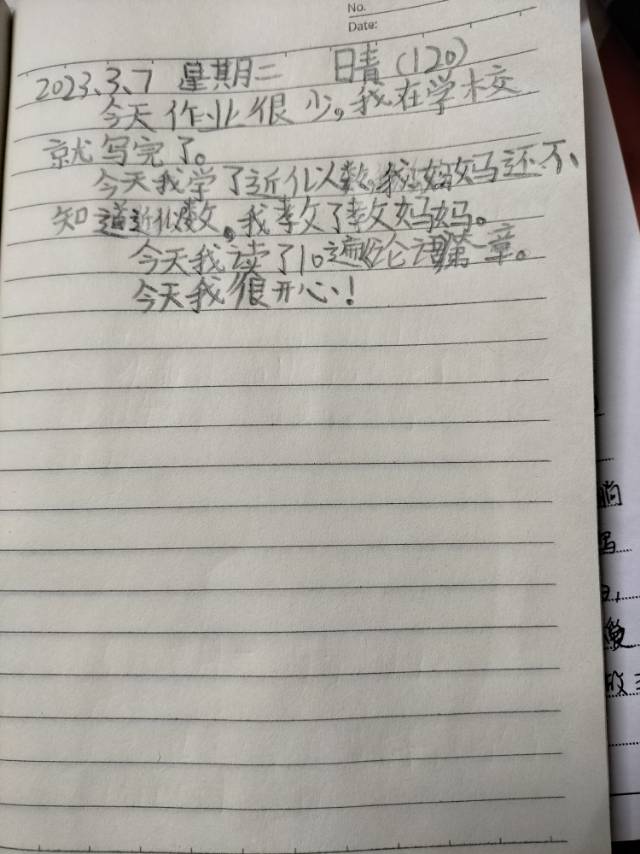 No.
Date:
2023.3.7 星期二 晴(120)
今天作业很少。我在学校
就写完了。
今天我学了近似数,我妈妈还不
知道近似数,我教了教妈妈。
今天我读了10遍论语第一章。
今天我很开心!